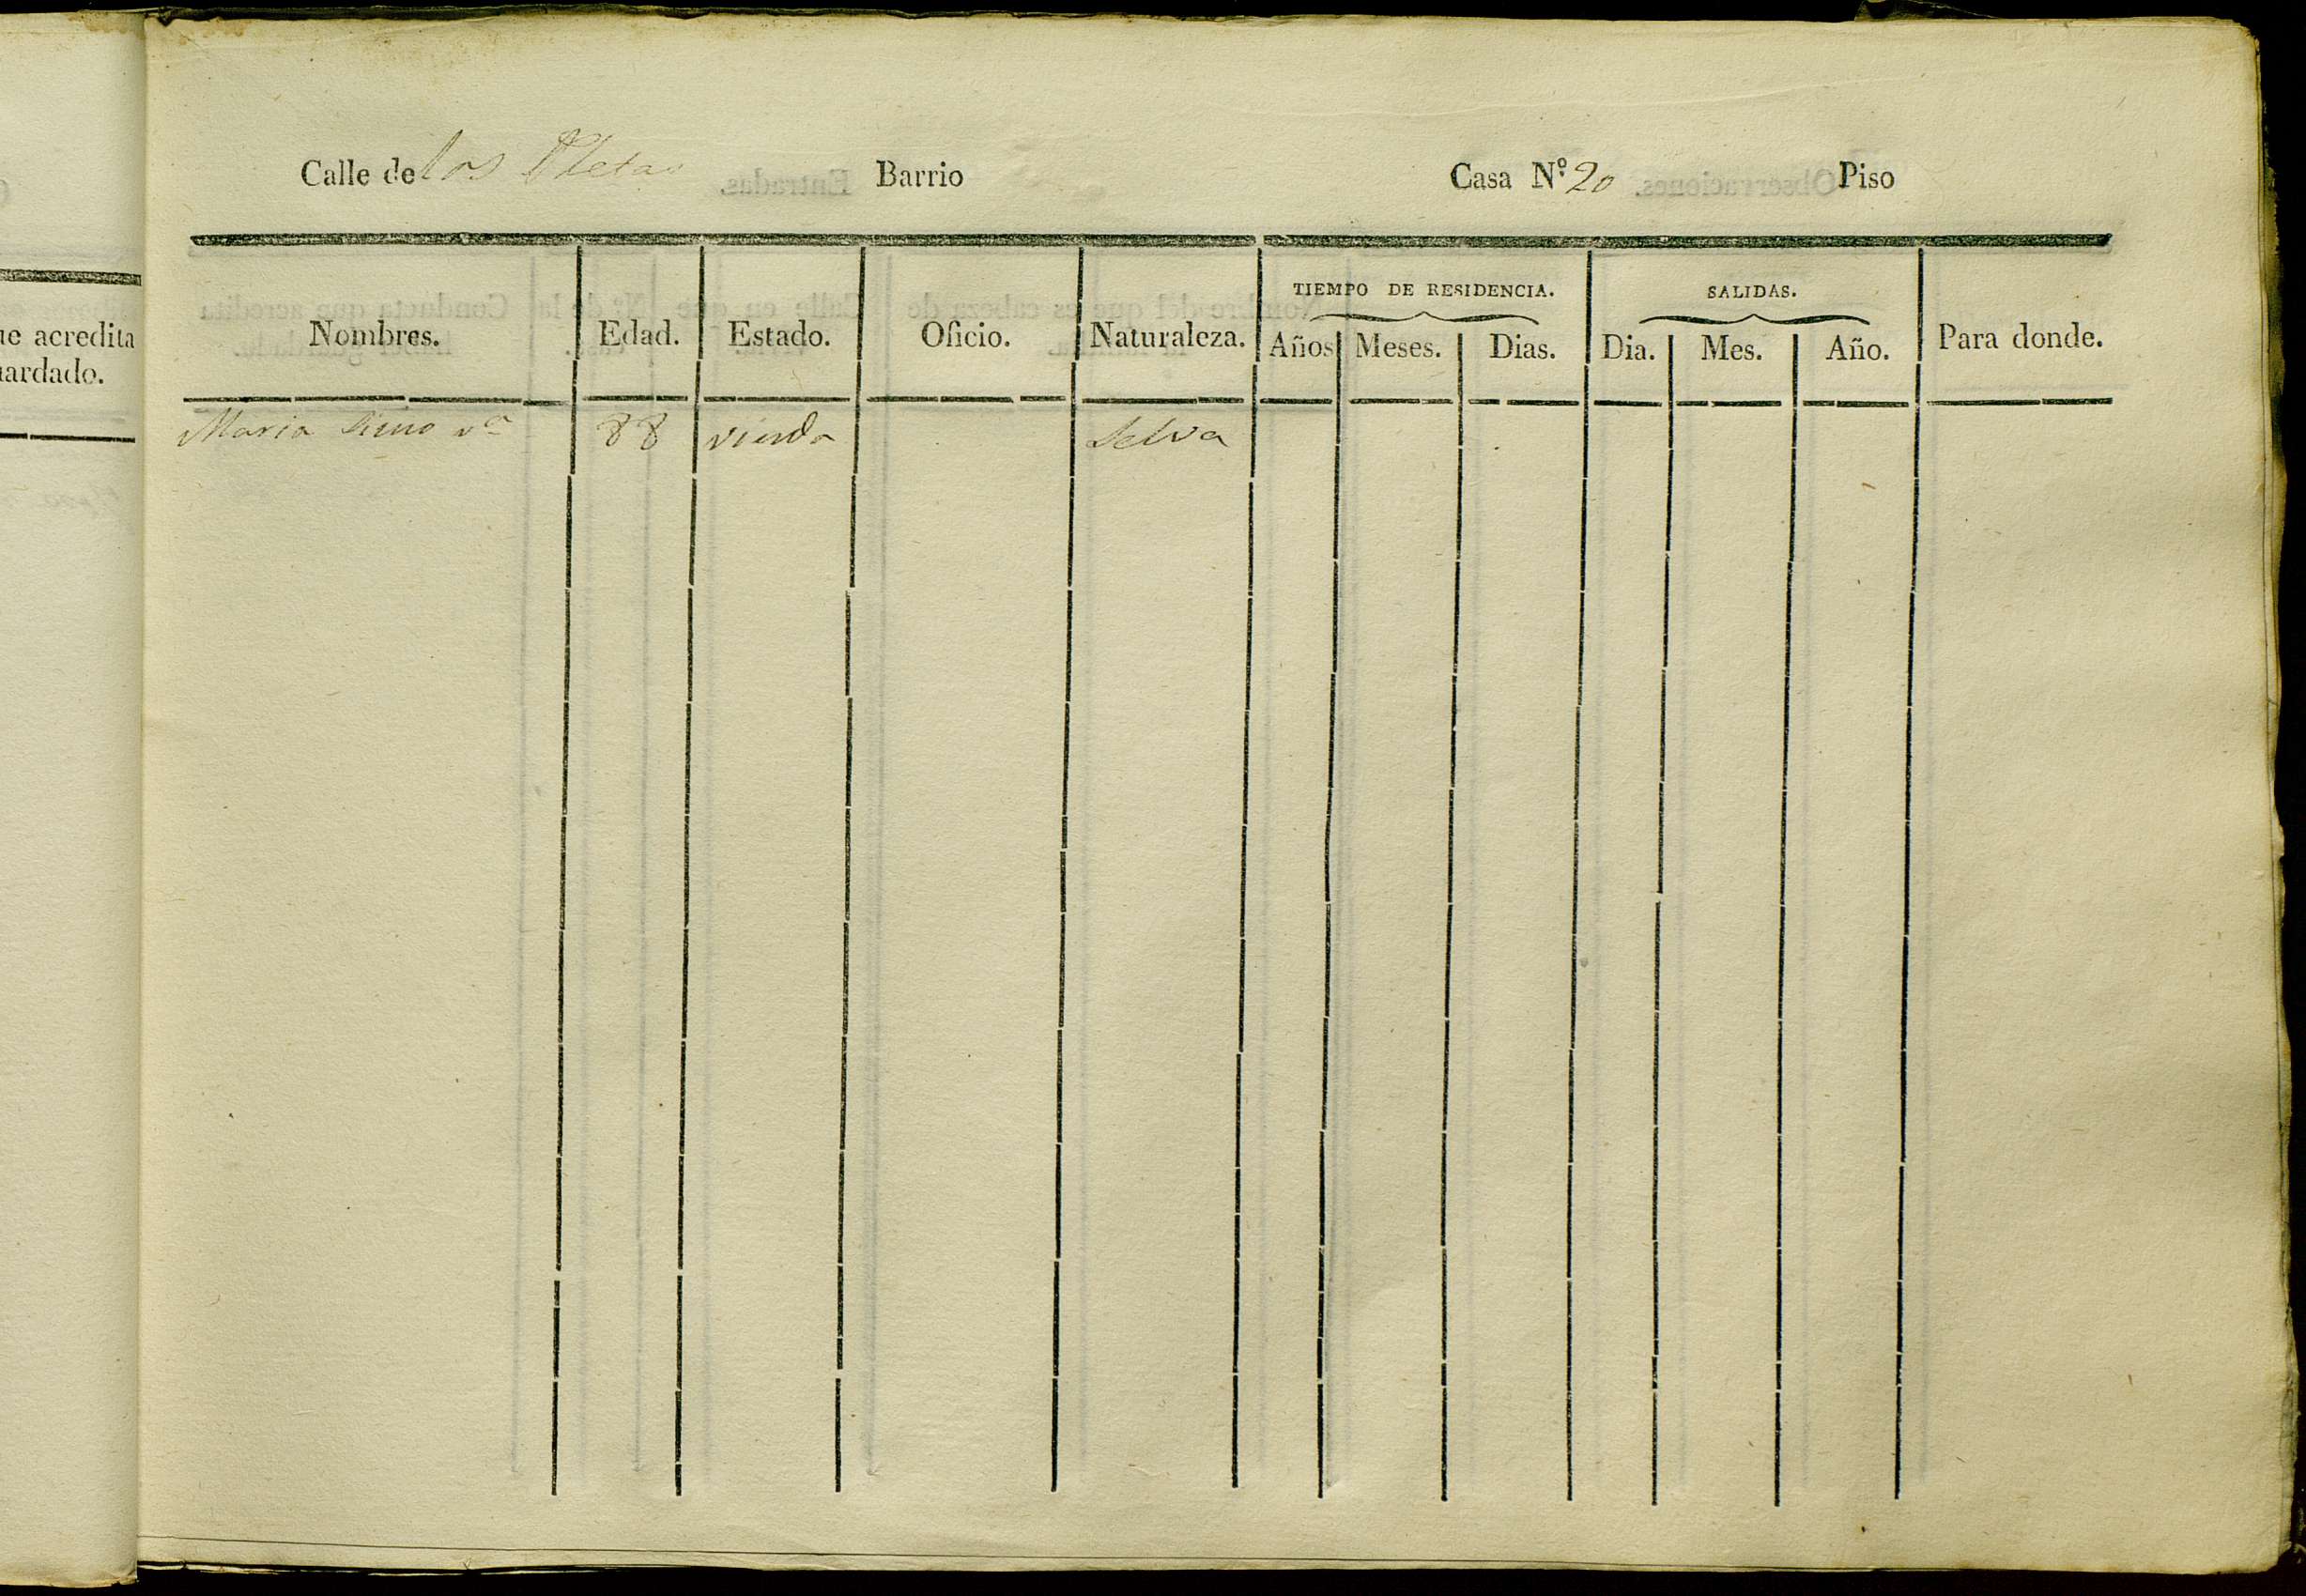 Calle de los Pletas Barrio Casa Nº 20 Piso
TIEMPO DE RESIDENCIA. SALIDAS.
Nombres. Edad. Estado. Oficio. Naturaleza. Años Meses. Dias. Dia. Mes. Año. Para donde.
Maria Simo vª 88 viuda Selva
ue acredita
uardado.